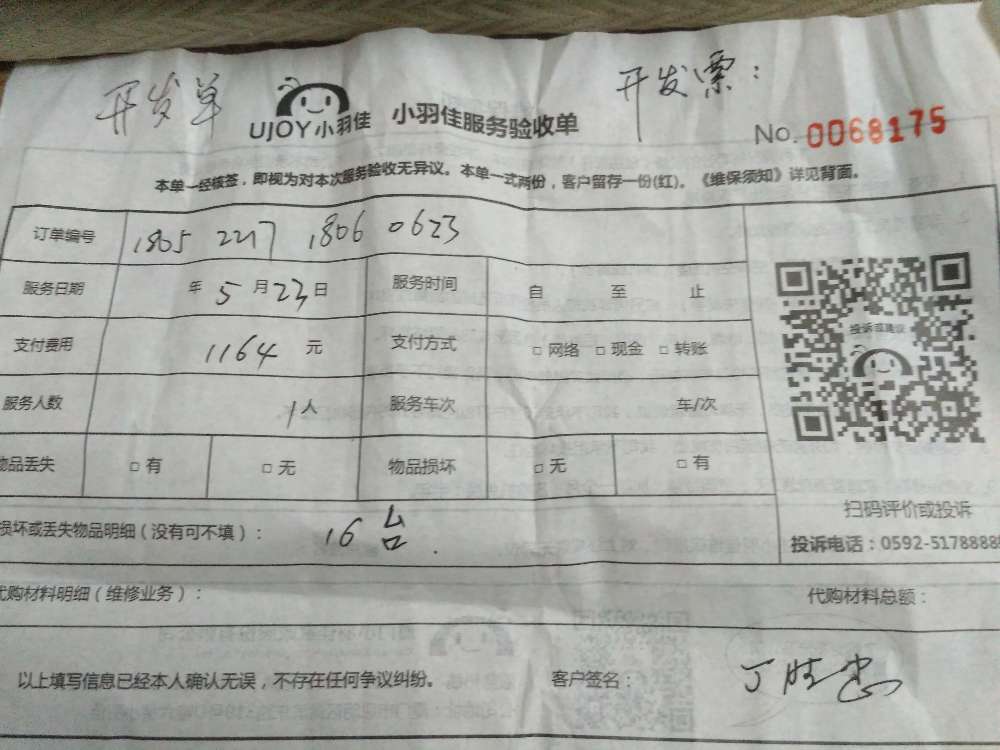 开发单
UJOY小羽佳 小羽佳服务验收单
开发票：
No. 0068175
本单一经核签，即视为对本次服务验收无异议。本单一式两份，客户留存一份(红)。《维保须知》详见背面。
订单编号 1805 2217 1806 0623
服务日期 年 5 月 23 日 服务时间 自 至 止
支付费用 1164 元 支付方式 □ 网络 □ 现金 □ 转账
服务人数 1 人 服务车次 车/次
物品丢失 □ 有 □ 无 物品损坏 □ 无 □ 有
投诉或建议
扫码评价或投诉
投诉电话：0592-5178888
损坏或丢失物品明细（没有可不填）： 16 台.
代购材料明细（维修业务）： 代购材料总额：
以上填写信息已经本人确认无误，不存在任何争议纠纷。 客户签名： 丁